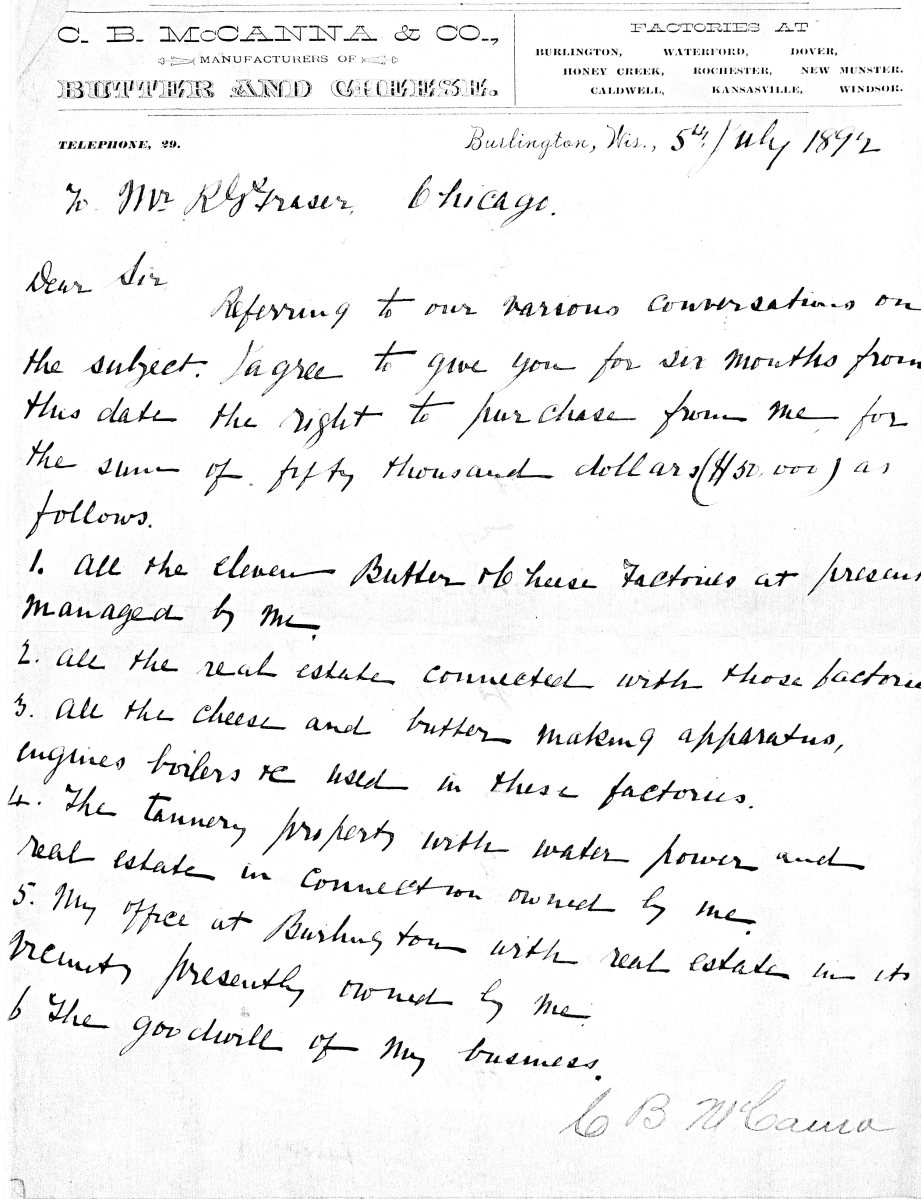 C. B. McCANNA & CO.,
MANUFACTURERS OF
BUTTER AND CHEESE.
FACTORIES AT
BURLINGTON, WATERFORD, DOVER,
HONEY CREEK, ROCHESTER, NEW MUNSTER.
CALDWELL, KANSASVILLE, WINDSOR.
TELEPHONE, 29.
Burlington, Wis., 5th July 1892
To Mr R G Fraser, Chicago.
Dear Sir
Referring to our various conversations on
the subject. I agree to give you for six months from
this date the right to purchase from me for
the sum of fifty thousand dollars ($50,000) as
follows.
1. All the eleven Butter & Cheese Factories at present
managed by me.
2. All the real estate connected with those factories
3. All the cheese and butter making apparatus,
engines boilers &c used in these factories.
4. The tannery property with water power and
real estate in connection owned by me.
5. My office at Burlington with real estate in its
vicinity presently owned by me.
6 The goodwill of my business.
C B McCanna